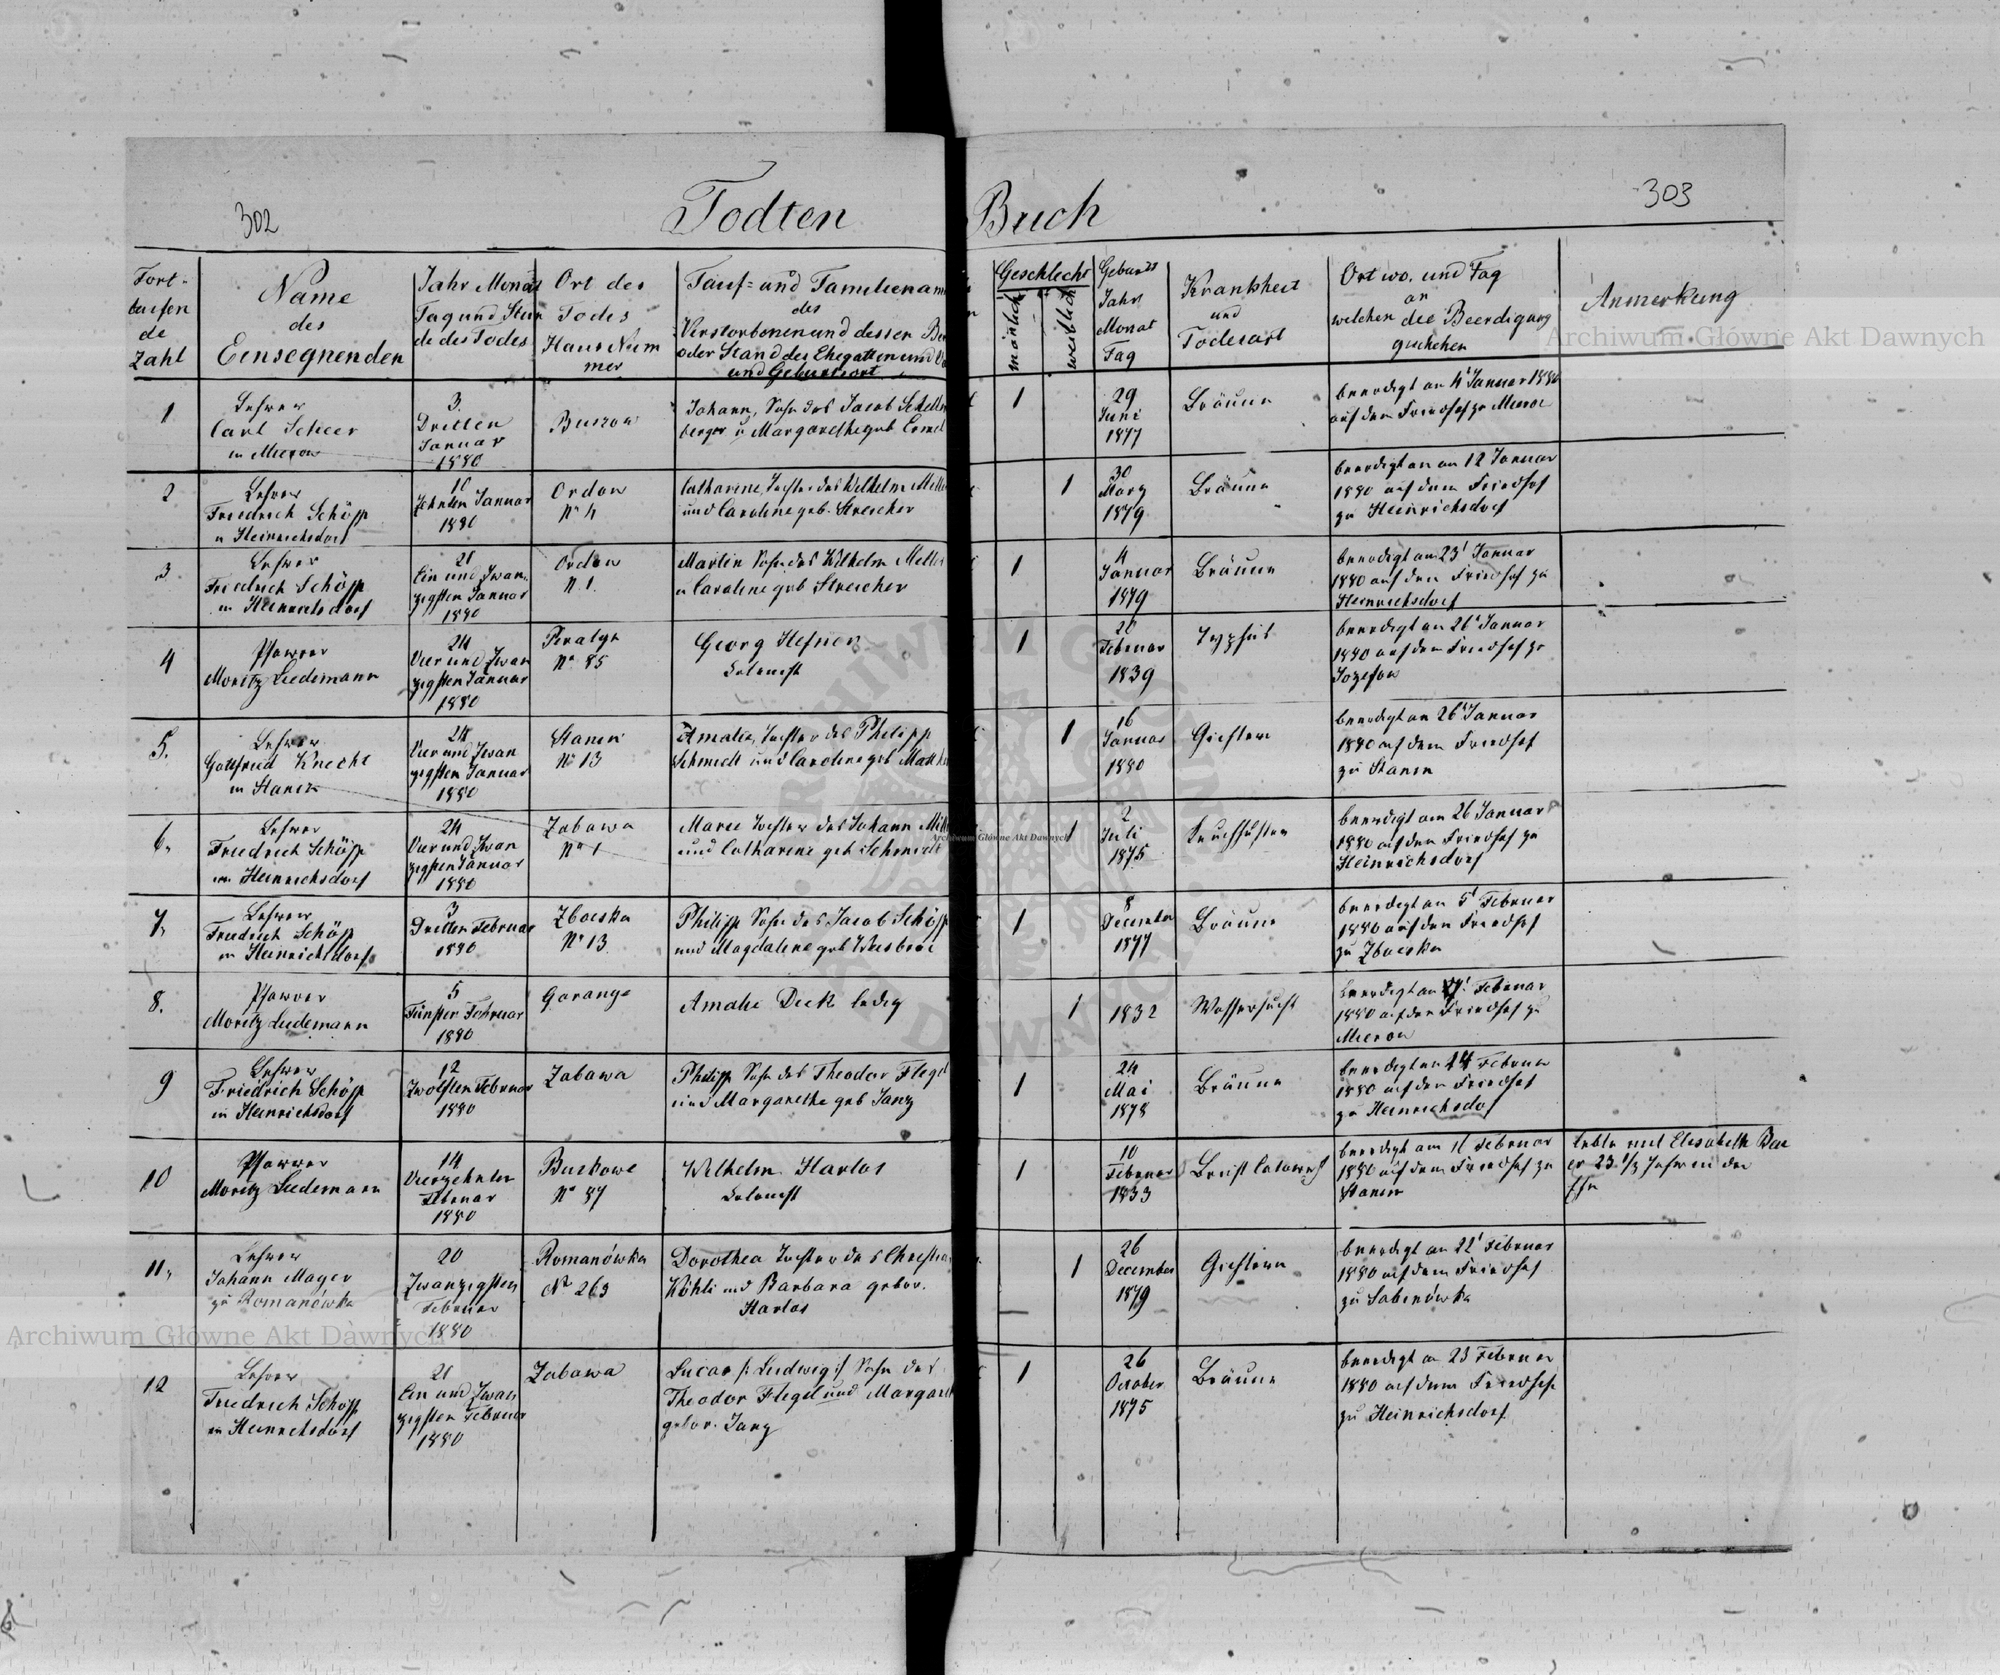 302
Todten Buch
303
Fort-
laufen
de
Zahl
Name
des
Einsegnenden
Jahr Monat
Tag und Stun
de des Todes
Ort des
Todes
Haus Num
mer
Tauf= und Familiename
des
Verstorbenen und dessen
oder Stand des Ehegatten und
und Geburtsort
Geschlecht
mänlich
weiblich
Geburts
Jahr
Monat
Tag
Krankheit
und
Todesart
Ort wo, und Tag
an
welchen die Beerdigung
geschehen
Anmerkung
1
Lehrer
Carl Scheer
in Mierow
3.
Dritten
Januar
1880
Burzow
Johann, Sohn des Jacob Schellen
berger u Margarethe geb Ermel
1
29
Juni
1877
Bräune
beerdigt am 4t Januar 1880
auf dem Friedhof zu Mierow
2
Lehrer
Friedrich Schöpp
in Heinrichsdorf
10
Zehnten Januar
1880
Ordow
No 4
Catharine, Tochter des Wilhelm
und Caroline geb. Strescher
1
30
März
1879
Bräune
beerdigt am 12 Januar
1880 auf dem Friedhof
zu Heinrichsdorf
3
Lehrer
Friedrich Schöpp
in Heinrichsdorf
21
Ein und Zwan
zigsten Januar
1880
Ordow
N. 1.
Martin Sohn des Wilhelm
u Caroline geb Strescher
1
4
Januar
1879
Bräune
beerdigt am 23t Januar
1880 auf dem Friedhof zu
Heinrichsdorf
4
Pfarrer
Moritz Liedemann
24
Vier und Zwan
zigsten Januar
1880
No 85
Georg Hefner
Kolonist
1
Februar
1839
Typhus
beerdigt am 26t Januar
1880 auf dem Friedhof zu
Jozefow
5.
Lehrer
Gottfried Knecht
in Stanin
24
Vier und Zwan
zigsten Januar
1880
Stanin
No 13
Amalie, Tochter des Philipp
Schmidt und Caroline geb
1
16
Januar
1880
Gichtern
beerdigt am 26t Januar
1880 auf dem Friedhof
zu Stanin
6.
Lehrer
Friedrich Schöpp
in Heinrichsdorf
24
Vier und Zwan
zigsten Januar
1880
Zabawa
No 1
Marie Tochter des Johann
und Catharine geb Schmidt
1
2
Juli
1875
Keuchhusten
beerdigt am 26 Januar
1880 auf dem Friedhof zu
Heinrichsdorf
7.
Lehrer
Friedrich Schöpp
in Heinrichsdorf
3
Dritten Februar
1880
Zboiska
No 13
Philipp Sohn des Jacob Schöpp
und Magdalene geb Weisbrod
1
8
December
1877
Bräune
beerdigt am 5t Februar
1880 auf dem Friedhof
zu Zboiska
8.
Pfarrer
Moritz Liedemann
5
Fünften Februar
1880
Amalie Deck ledig
1
1832
Wassersucht
beerdigt am 7t Februar
1880 auf dem Friedhof zu
Mierow
9
Lehrer
Friedrich Schöpp
in Heinrichsdorf
12
Zwölften Februar
1880
Zabawa
Philipp Sohn des Theodor Flegel
und Margarethe geb Janz
1
24
Mai
1878
Bräune
beerdigt am 14 Februar
1880 auf dem Friedhof
zu Heinrichsdorf
10
Pfarrer
Moritz Liedemann
14
Vierzehnten
Februar
1880
No 87
Wilhelm Harlos
Kolonist
1
10
Februar
1833
beerdigt am Februar
1880 auf dem Friedhof zu
Stanin
lebte mit Elisabeth
23 1/2 Jahre in der
Ehe
11.
Lehrer
Johann Mayer
zu Romanówka
20
Zwanzigsten
Februar
1880
Romanówka
No 263
Dorothea Tochter des Christian
Köhli und Barbara gebor.
Harlos
1
26
December
1879
Gichtern
beerdigt am 22t Februar
1880 auf dem Friedhof
zu Sabinówka
12
Lehrer
Friedrich Schöpp
in Heinrichsdorf
21
Ein und Zwan
zigsten Februar
1880
Zabawa
Lucas /: Ludwig :/ Sohn des
Theodor Flegel und Margareth
gebor. Janz
1
26
October
1875
Bräune
beerdigt am 23 Februar
1880 auf dem Friedhofe
zu Heinrichsdorf
Archiwum Główne Akt Dawnych
Archiwum Główne Akt Dawnych
Archiwum Główne Akt Dawnych
ARCHIWUM GŁÓWNE AKT DAWNYCH